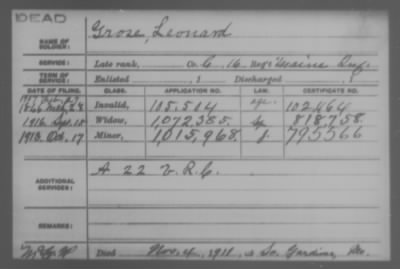 DEAD
NAME OF SOLDIER: Grose, Leonard
SERVICE: Late rank, Co. C, 16 Reg't Maine Inf.
TERM OF SERVICE: Enlisted , 1 Discharged , 1
DATE OF FILING. CLASS. APPLICATION NO. LAW. CERTIFICATE NO.
Invalid, 105,514 102,464
1916 Widow, 1,072,385 818,758
1913 Oct. 17 Minor, 1,015,968 795566
ADDITIONAL SERVICES: A 22 V.R.C.
REMARKS:
Died Nov. 4, 1911, at So. Gardiner, Me.